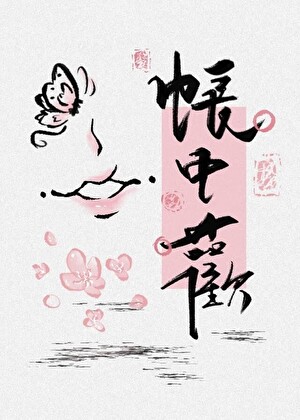 帳中歡